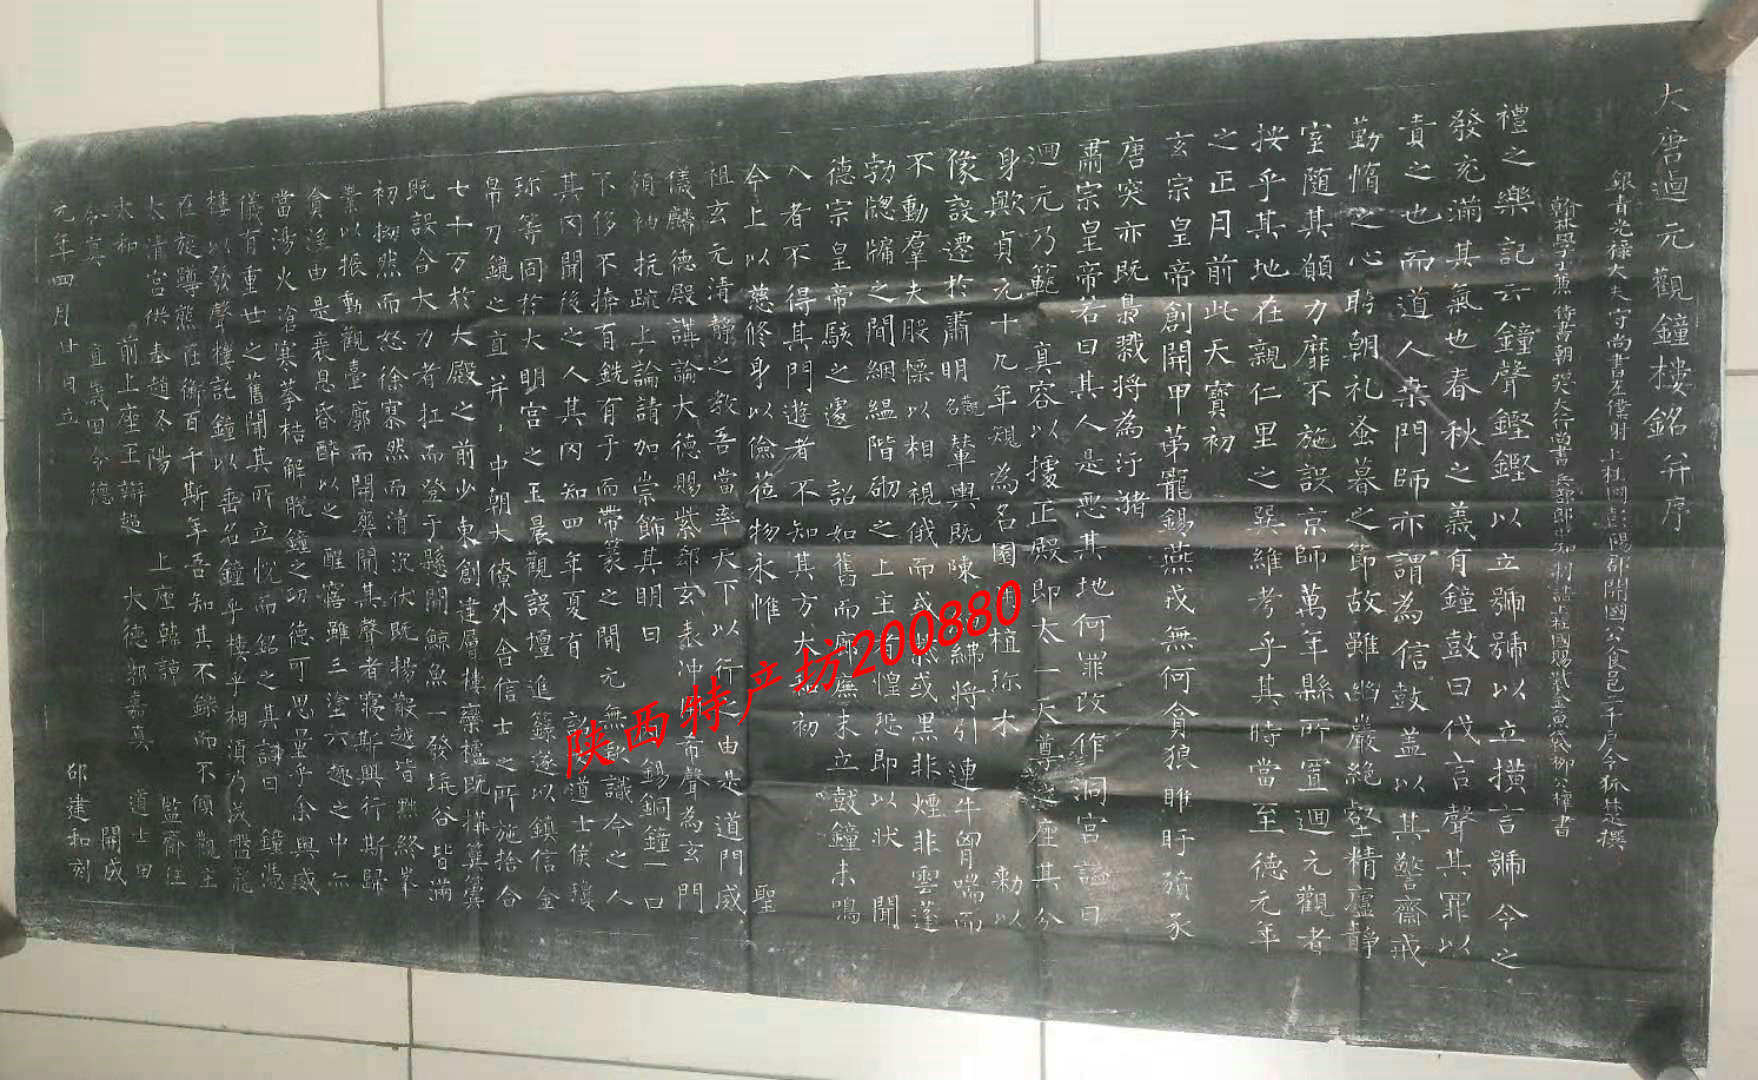 大唐迴元觀鐘樓銘并序
銀青光祿大夫守尚書左僕射上柱國彭陽郡開國公食邑二千戶令狐楚撰
翰林學士兼侍書朝議大夫行尚書兵部郎中知制誥上柱國賜紫金魚袋柳公權書
禮之樂記云鐘聲鏗鏗以立號號以立橫言號令之
發充滿其氣也春秋之義有鐘鼓曰伐言聲其罪以
責之也而道人桒門師亦謂為信鼓盖以其警齋戒
勤惰之心時朝礼蚤暮之節故雖幽嚴絕壑精廬靜
室隨其願力靡不施設京師萬年縣所置迴元觀者
按乎其地在親仁里之巽維考乎其時當至德元年
之正月前此天寶初
玄宗皇帝創開甲第寵錫燕戎無何貪狼睢盱豮豕
唐突亦既梟戮將為汙猪
肅宗皇帝若曰其人是惡其地何罪改作洞宮謚曰
迴元乃範真容以據正殿即太一天尊之座其分
身歟貞元十九年規為名園用植珎木敕以
像設遷於肅明觀名輦輿既陳綍將引連牛胷喘而
不動羣夫股慄以相視俄而或紫或黑非煙非雲蓬
勃窗牖之間絪縕階砌之上主者惶恐即以狀聞
德宗皇帝駭之遽詔如舊而廊廡未立鼓鐘未鳴
入者不得其門遊者不知其方大和初
今上以慈修身以儉蒞物永惟聖
祖玄元清靜之教吾當率天下以行之由是道門威
儀麟德殿講論大德賜紫郄玄表沖用希聲為玄門
領袖抗疏上論請加崇飾其明曰內錫銅鐘一口
不侈不揜有銑有于而帶篆之間元無款識今之人
其罔聞後之人其罔知四年夏有詔女道士侯瓊
珎等同於大明宮之玉晨觀設壇進籙遂以鎮信金
帛刀鏡之直并中朝大僚外舍信士之所施捨合
七十万於大殿之前少東創建層樓欒櫨既構簨簴
既設合大力者扛而登于懸閒鯨魚一發坑谷皆滿
初拗然而怒徐寥然而清沉伏既揚散越皆黙終峯
業以振動觀臺廓而開爽聞其聲者寢斯興行斯歸
貪淫由是衰息昏醉以之醒寤雖三塗六趣之中亦
當湯火滄寒拳桔解脫鐘之功德可思量乎余與威
儀有重世之舊聞其所立悅而銘之其詞曰鐘憑
樓以發聲樓託鐘以垂名鐘乎樓乎相須乃成盤龍
在旋蹲熊在衡百千斯年吾知其不鑠而不傾觀主
太清宮供奉趙冬陽上座韓諒監齋任
太和前上座至辯超大德郭嘉真道士田
令真直歲田令德開成
元年四月廿日立邵建和刻
陝西特产坊200880